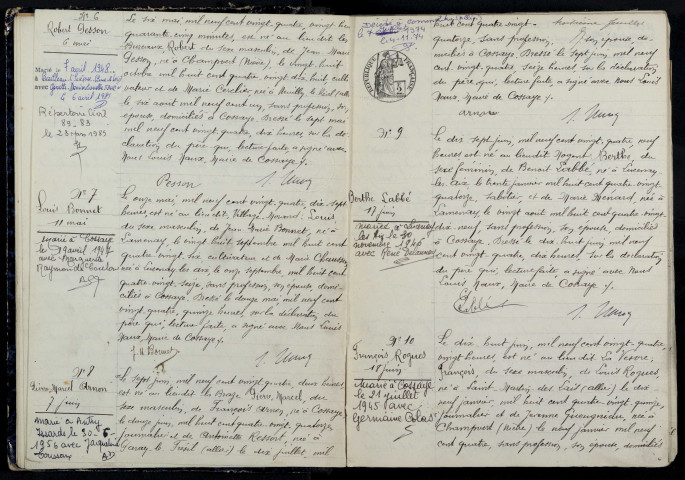 N° 6
Robert Pesson
6 mai
Marié le 7 avril 1948
le 6 avril 1981
Répertoire Civil
89-83
le 23 juin 1989
Le six mai, mil neuf cent vingt-quatre, vingt heures
quarante cinq minutes, est né au lieu dit les
Bureaux, Robert du sexe masculin, de Jean Marie
Pesson, né à Champvert (Nièvre), le vingt huit
octobre mil huit cent quatre vingt dix huit, culti-
vateur et de Marie Cerclier, née à Neuilly
le six août mil neuf cent un, sans profession, son
épouse, domiciliés à Cossaye. Dressé le sept mai
mil neuf cent vingt-quatre, dix heures sur la dé-
claration du père qui, lecture faite, a signé avec
Nous Louis Maux, Maire de Cossaye.
Pesson
N° 7
Louis Bonnet
11 mai
Marié à Cossaye
le 29 avril 1947
avec Marguerite
Raymonde
Le onze mai, mil neuf cent vingt-quatre, dix sept
heures, est né au lieu dit, Village, Louis
du sexe masculin, de Jean Marie Bonnet, né à
Lamenay, le vingt huit septembre mil huit cent
quatre vingt, cultivateur et de Marie
née à Lucenay les Aix, le cinq septembre, mil huit cent
quatre vingt, seize, sans profession, son épouse, domi-
ciliés à Cossaye. Dressé le douze mai, mil neuf cent
vingt quatre, quinze heures, sur la déclaration du
père qui, lecture faite, a signé avec Nous Louis
Maux, Maire de Cossaye.
J M Bonnet
N° 8
Pierre Marcel Arnon
7 juin
marié à Autry
Issards le 30-6-
1956 avec Jaqueline
Le sept juin, mil neuf cent vingt quatre deux heures
est né au lieu dit les Pierre, Marcel, du
sexe masculin, de François Arnon, né à Cossaye
le douze juin, mil huit cent quatre vingt, quatorze
journalier et de Antoinette née à
(allier) le dix juillet, mil
huit cent quatre vingt-
quatorze, sans profession, son épouse, do-
miciliés à Cossaye. Dressé le sept juin, mil neuf
cent vingt quatre, seize heures sur la déclaration
du père qui, lecture faite, a signé avec Nous Louis
Maux, Maire de Cossaye.
arnon
RÉPUBLIQUE FRANÇAISE
N° 9
Berthe Labbé
17 juin
mariée à Lucenay
les Aix le 30
novembre 1946
avec René
Le dix sept juin, mil neuf cent vingt-quatre, neuf
heures est né au lieu dit Nogent Berthe du
sexe féminin, de Benoit Labbé, né à Lucenay
les Aix, le trente janvier mil huit cent quatre vingt,
quatorze, sabotier, et de Marie Menard, née à
Lamenay, le vingt août mil huit cent quatre vingt
dix neuf, sans profession, son épouse, domiciliés
à Cossaye. Dressé le dix huit juin, mil neuf
cent vingt quatre, dix heures, sur la déclaration
du père qui, lecture faite, a signé avec Nous
Louis Maux, Maire de Cossaye.
Labbé
N° 10
François Rogues
18 juin
Marié à Cossaye
le 21 juillet
1945 avec
Germaine Colas
Le dix huit juin, mil neuf cent vingt-quatre
vingt heures, est né au lieu dit La Vesvre
François, du sexe masculin, de Louis Rogues,
né à Saint Martin des Lais (allier) le dix
neuf janvier, mil huit cent quatre vingt, quinze,
journalier et de Jeanne née à
Champvert (Nièvre) le neuf janvier mil neuf
cent quatre, sans profession, son épouse, domiciliés